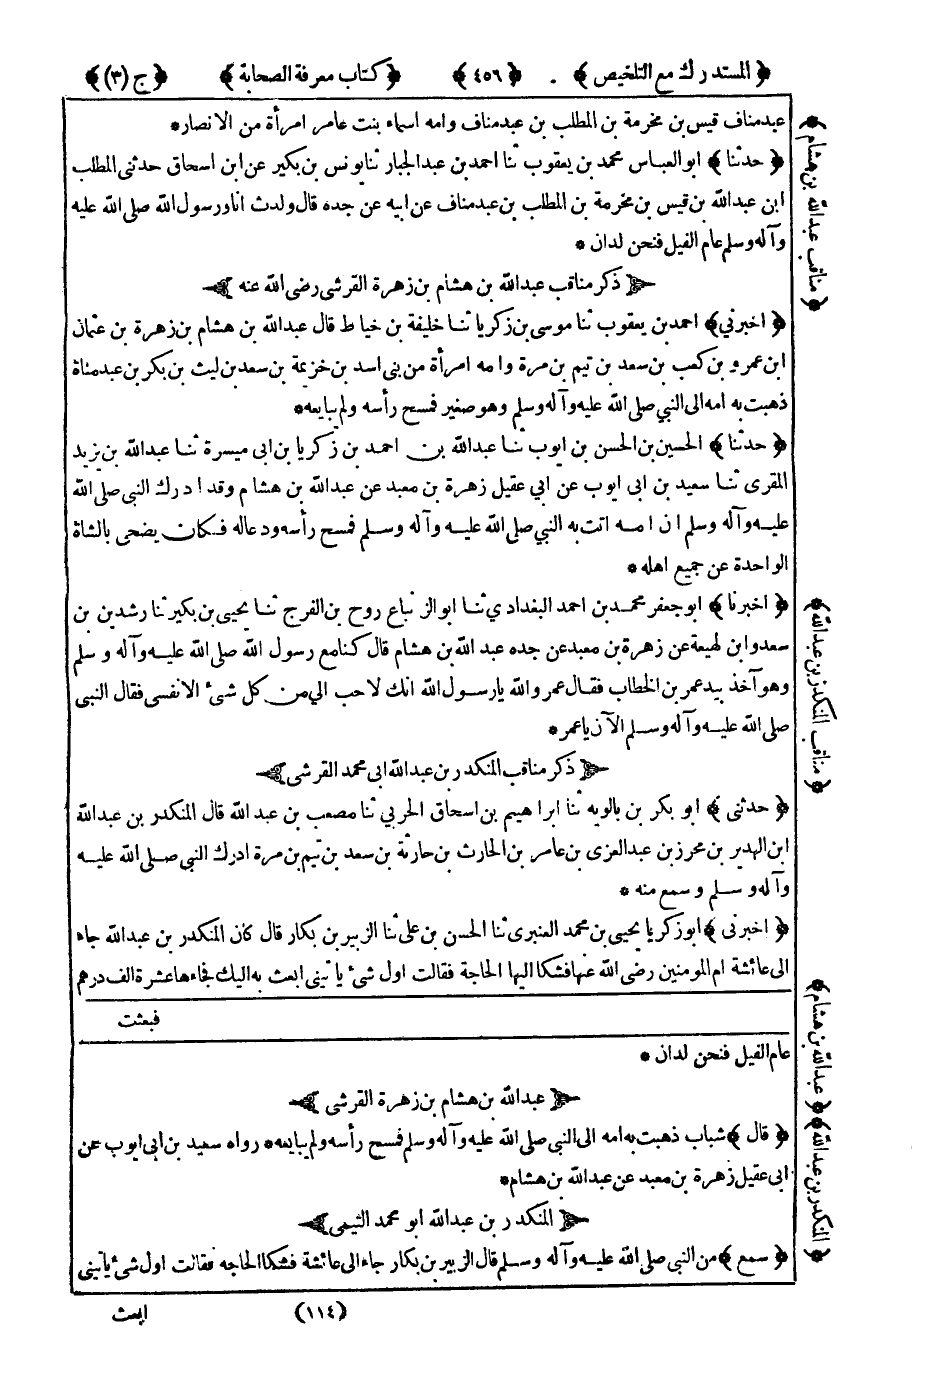 ﴿ المستدرك مع التلخيص ﴾ . ﴿ ٤٥٦ ﴾ ﴿ كتاب معرفة الصحابة ﴾ ﴿ ج (٣) ﴾
عبدمناف قيس بن مخرمة بن المطلب بن عبدمناف وامه اسماء بنت عامر امرأة من الانصار*
﴿ حدثنا ﴾ ابوالعباس محمد بن يعقوب ثنا احمد بن عبدالجبار ثنا يونس بن بكير عن ابن اسحاق حدثني المطلب
ابن عبدالله بن قيس بن مخرمة بن المطلب بن عبدمناف عن ابيه عن جده قال ولدت انا ورسول الله صلى الله عليه
وآله وسلم عام الفيل فنحن لدان *
﴿ ذكر مناقب عبدالله بن هشام بن زهرة القرشى رضى الله عنه ﴾
﴿ اخبرني ﴾ احمد بن يعقوب ثنا موسى بن زكريا ثنا خليفة بن خياط قال عبدالله بن هشام بن زهرة بن عثمان
ابن عمرو بن كعب بن سعد بن تيم بن مرة وامه امرأة من بنى اسد بن خزيمة بن سعد بن ليث بن بكر بن عبدمناة
ذهبت به امه الى النبي صلى الله عليه وآله وسلم وهو صغير فمسح رأسه ولم يبايعه*
﴿ حدثنا ﴾ الحسين بن الحسن بن ايوب ثنا عبدالله بن احمد بن زكريا بن ابى ميسرة ثنا عبدالله بن يزيد
المقرى ثنا سعيد بن ابى ايوب عن ابي عقيل زهرة بن معبد عن عبدالله بن هشام وقد ادرك النبي صلى الله
عليه وآله وسلم ان امه اتت به النبي صلى الله عليه وآله وسلم فمسح رأسه ودعاله فكان يضحى بالشاة
الواحدة عن جميع اهله *
﴿ اخبرنا ﴾ ابوجعفر محمد بن احمد البغدادي ثنا ابوالزنباع روح بن الفرج ثنا يحيى بن بكير ثنا رشدين بن
سعد وابن لهيعة عن زهرة بن معبد عن جده عبد الله بن هشام قال كنا مع رسول الله صلى الله عليه وآله وسلم
وهو آخذ بيد عمر بن الخطاب فقال عمر والله يارسول الله انك لاحب الي من كل شئ الا نفسى فقال النبى
صلى الله عليه وآله وسلم الآن ياعمر*
﴿ ذكر مناقب المنكدر بن عبدالله ابى محمد القرشى ﴾
﴿ حدثنى ﴾ ابو بكر بن بالويه ثنا ابراهيم بن اسحاق الحربي ثنا مصعب بن عبد الله قال المنكدر بن عبدالله
ابن الهدير بن محرز بن عبدالعزى بن عامر بن الحارث بن حارثة بن سعد بن تيم بن مرة ادرك النبي صلى الله عليه
وآله وسلم وسمع منه *
﴿ اخبرنى ﴾ ابوزكريا يحيى بن محمد العنبرى ثنا الحسن بن على ثنا الزبير بن بكار قال كان المنكدر بن عبدالله جاء
الى عائشة ام المومنين رضى الله عنها فشكا اليها الحاجة فقالت اول شئ ياتينى ابعث به اليك فجاءها عشرة الف درهم
فبعثت
عام الفيل فنحن لدان *
﴿ عبدالله بن هشام بن زهرة القرشى ﴾
﴿ قال ﴾ شباب ذهبت به امه الى النبى صلى الله عليه وآله وسلم فمسح رأسه ولم يبايعه* رواه سعيد بن ابى ايوب عن
ابى عقيل زهرة بن معبد عن عبدالله بن هشام*
﴿ المنكدر بن عبدالله ابو محمد التيمى ﴾
﴿ سمع ﴾ من النبي صلى الله عليه وآله وسلم قال الزبير بن بكار جاء الى عائشة فشكا الحاجه فقالت اول شئ ياتينى
(١١٤)
ابعث
﴿ مناقب عبدالله بن هشام ﴾
﴿ مناقب المنكدر بن عبدالله ﴾
﴿ عبدالله بن هشام ﴾
﴿ المنكدر بن عبدالله ﴾